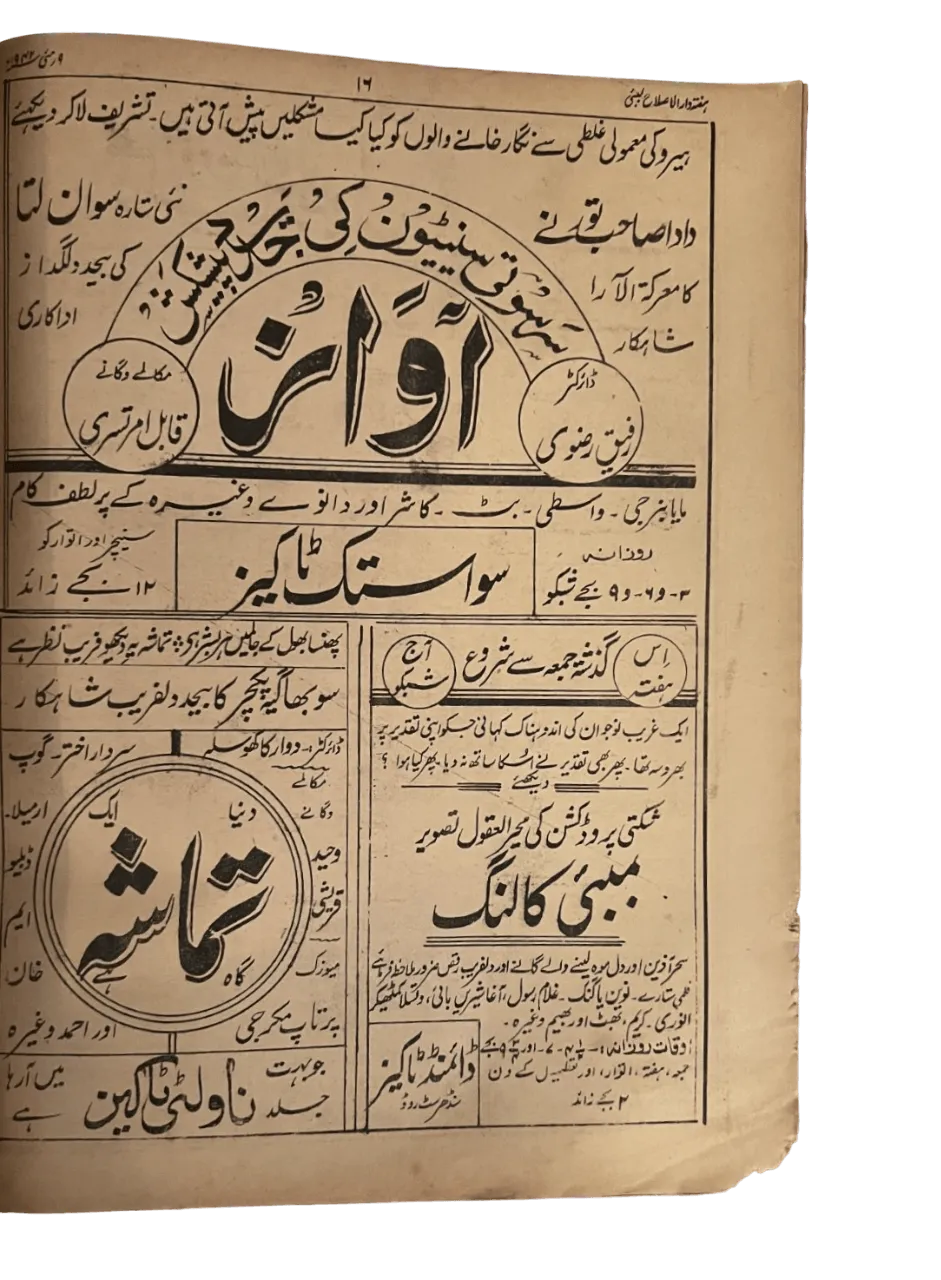 ہفتہ وار الاصلاح بمبئی
۱۶
۹ مئی ۱۹۴۲ء
ہیرو کی معمولی غلطی سے نگار خانے والوں کو کیا کیا مشکلیں پیش آتی ہیں۔ تشریف لاکر دیکھئے
دادا صاحب تورنے
کا معرکۃ الآرا
شاہکار
سرسوتی سنیٹون کی
پیشکش
نئی ستارہ سوان لتا
کی بیحد دلگداز
اداکاری
آواز
ڈائرکٹر
رفیق رضوی
مکالمے وگانے
قابل امرتسری
مایا بنرجی۔ واسطی۔ بٹ۔ کاشر اور دانوے وغیرہ کے پرلطف کام
روزانہ
۳۔ و ۶۔ و ۹ بجے شبکو
سواستک ٹاکیز
سنیچر اور اتوار کو
۱۲ بجے زائد
اس ہفتہ
گذشتہ جمعہ سے شروع
آج شبکو
ایک غریب نوجوان کی اندوہناک کہانی جسکو اپنی تقدیر پر
بھروسہ تھا۔ پھر بھی تقدیر نے اسکا ساتھ نہ دیا۔ پھر کیا ہوا ؟
دیکھئے
شکتی پروڈکشن کی محیرالعقول تصویر
ممبئی کالنگ
سحر آفرین اور دل موہ لینے والے گانے اور دلفریب رقص ضرور ملاحظہ فرمائیے
فلمی ستارے۔ نوین یاگنک۔ غلام رسول، آغا شیریں بائی، وتسلا کمٹھیکر
انوری۔ کریم، بھٹ اور بھیم وغیرہ۔
اوقات روزانہ:۔ ۴½۔ ۷۔ اور ۹½ بجے
جمعہ، ہفتہ، اتوار، اور تعطیل کے دن
۲ بجے زائد
ڈائمنڈ ٹاکیز
سنڈھرسٹ روڈ
پھنسا بھول کے جالمیں ہر بشر ہے ؞ تماشہ یہ دیکھو فریب نظر ہے
سوبھاگیہ پکچر کا بیحد دلفریب شاہکار
ڈائرکٹر:۔ دوارکا کھوسلہ
سردار اختر۔ گوپ
مکالمے
وگانے
وحید
قریشی
میوزک
پرتاپ مکرجی
دنیا ایک
تماشہ
گاہ ہے
ارمیلا۔
ڈبلیو
ایم
خان
اور احمد وغیرہ
جو بہت
جلد
ناولٹی ٹاکیز
میں آرہا
ہے